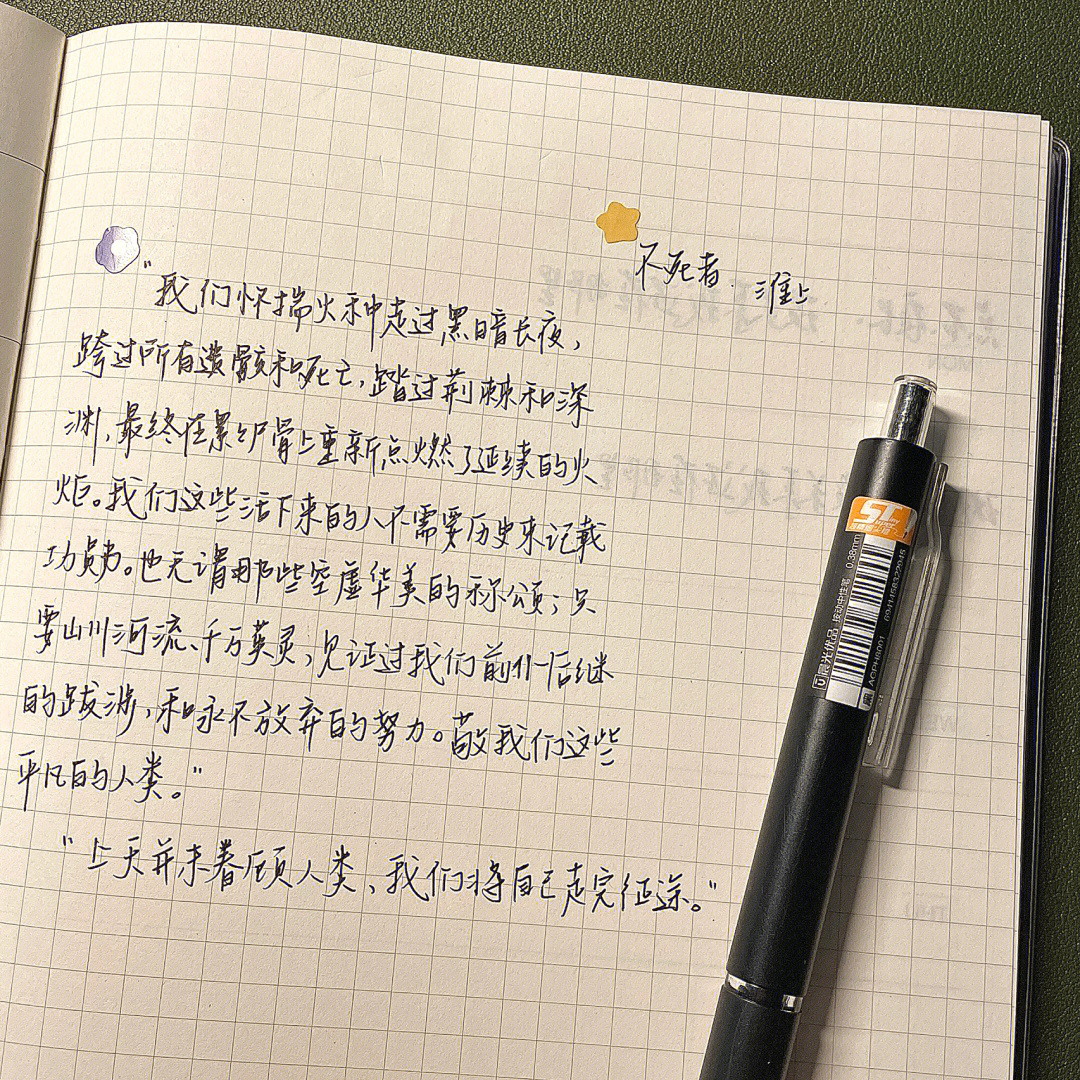 不死者. 淮上
"我们怀揣火种走过黑暗长夜,
跨过所有遗骸和死亡,踏过荆棘和深
渊,最终在累累尸骨上重新点燃了延续的火
炬。我们这些活下来的人不需要历史来记载
功勋。也无谓那些空虚华美的称颂;只
要山川河流、千万英灵,见证过我们前仆后继
的跋涉,和永不放弃的努力。敬我们这些
平凡的人类。"
"上天并未眷顾人类、我们将自己走完征途。"
ST
晨光优品 按动中性笔 0.38mm
AGPH8001 6941458322945
黑